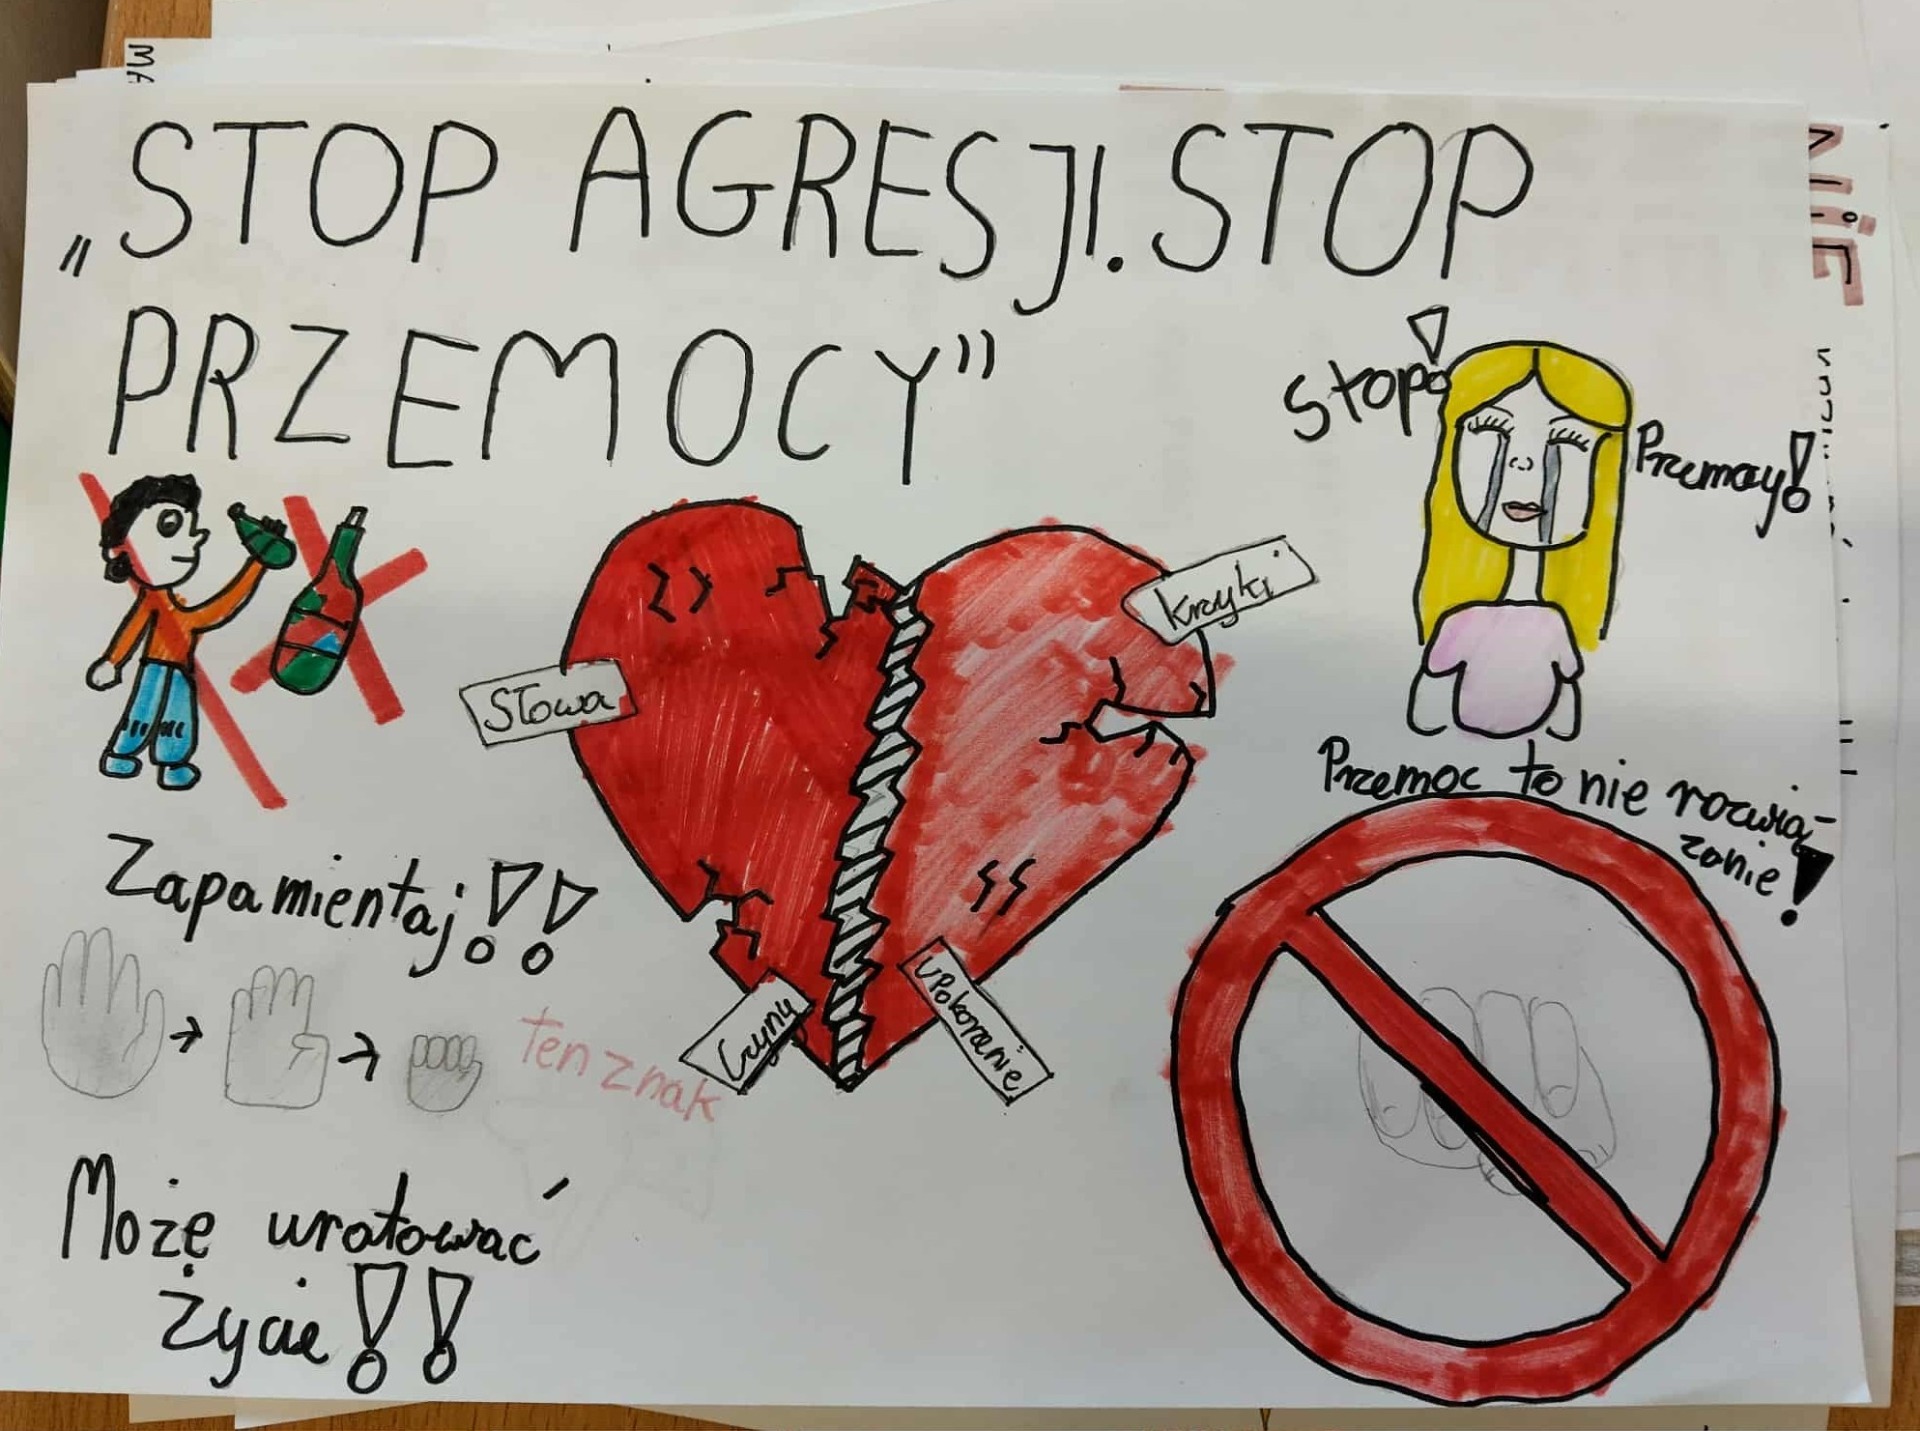 „STOP AGRESJI. STOP
PRZEMOCY”
Stop!
Przemocy!
Krzyki
Słowa
Przemoc to nie rozwią-
zanie!
Zapamientaj!!
Czyny
upokorzenie
ten znak
Może uratować
życie!!
NIE